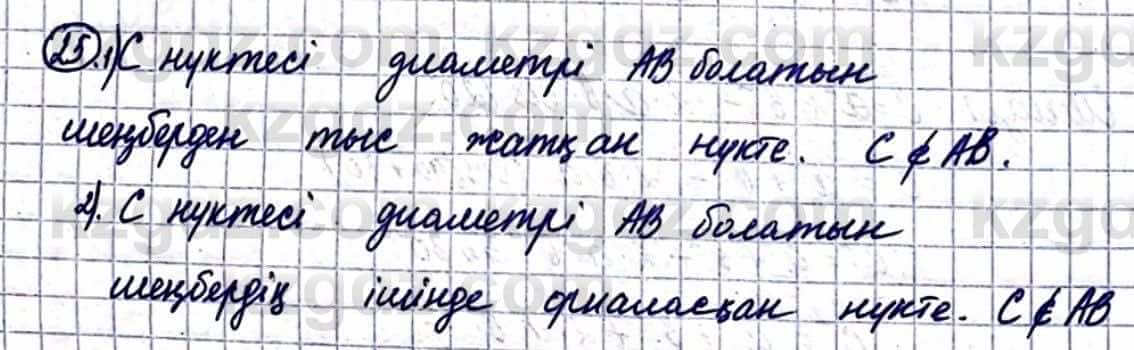 25. 1) С нүктесі диаметрі АВ болатын
шеңберден тыс жатқан нүкте. С ∉ АВ.
2). С нүктесі диаметрі АВ болатын
шеңбердің ішінде орналасқан нүкте. С ∉ АВ